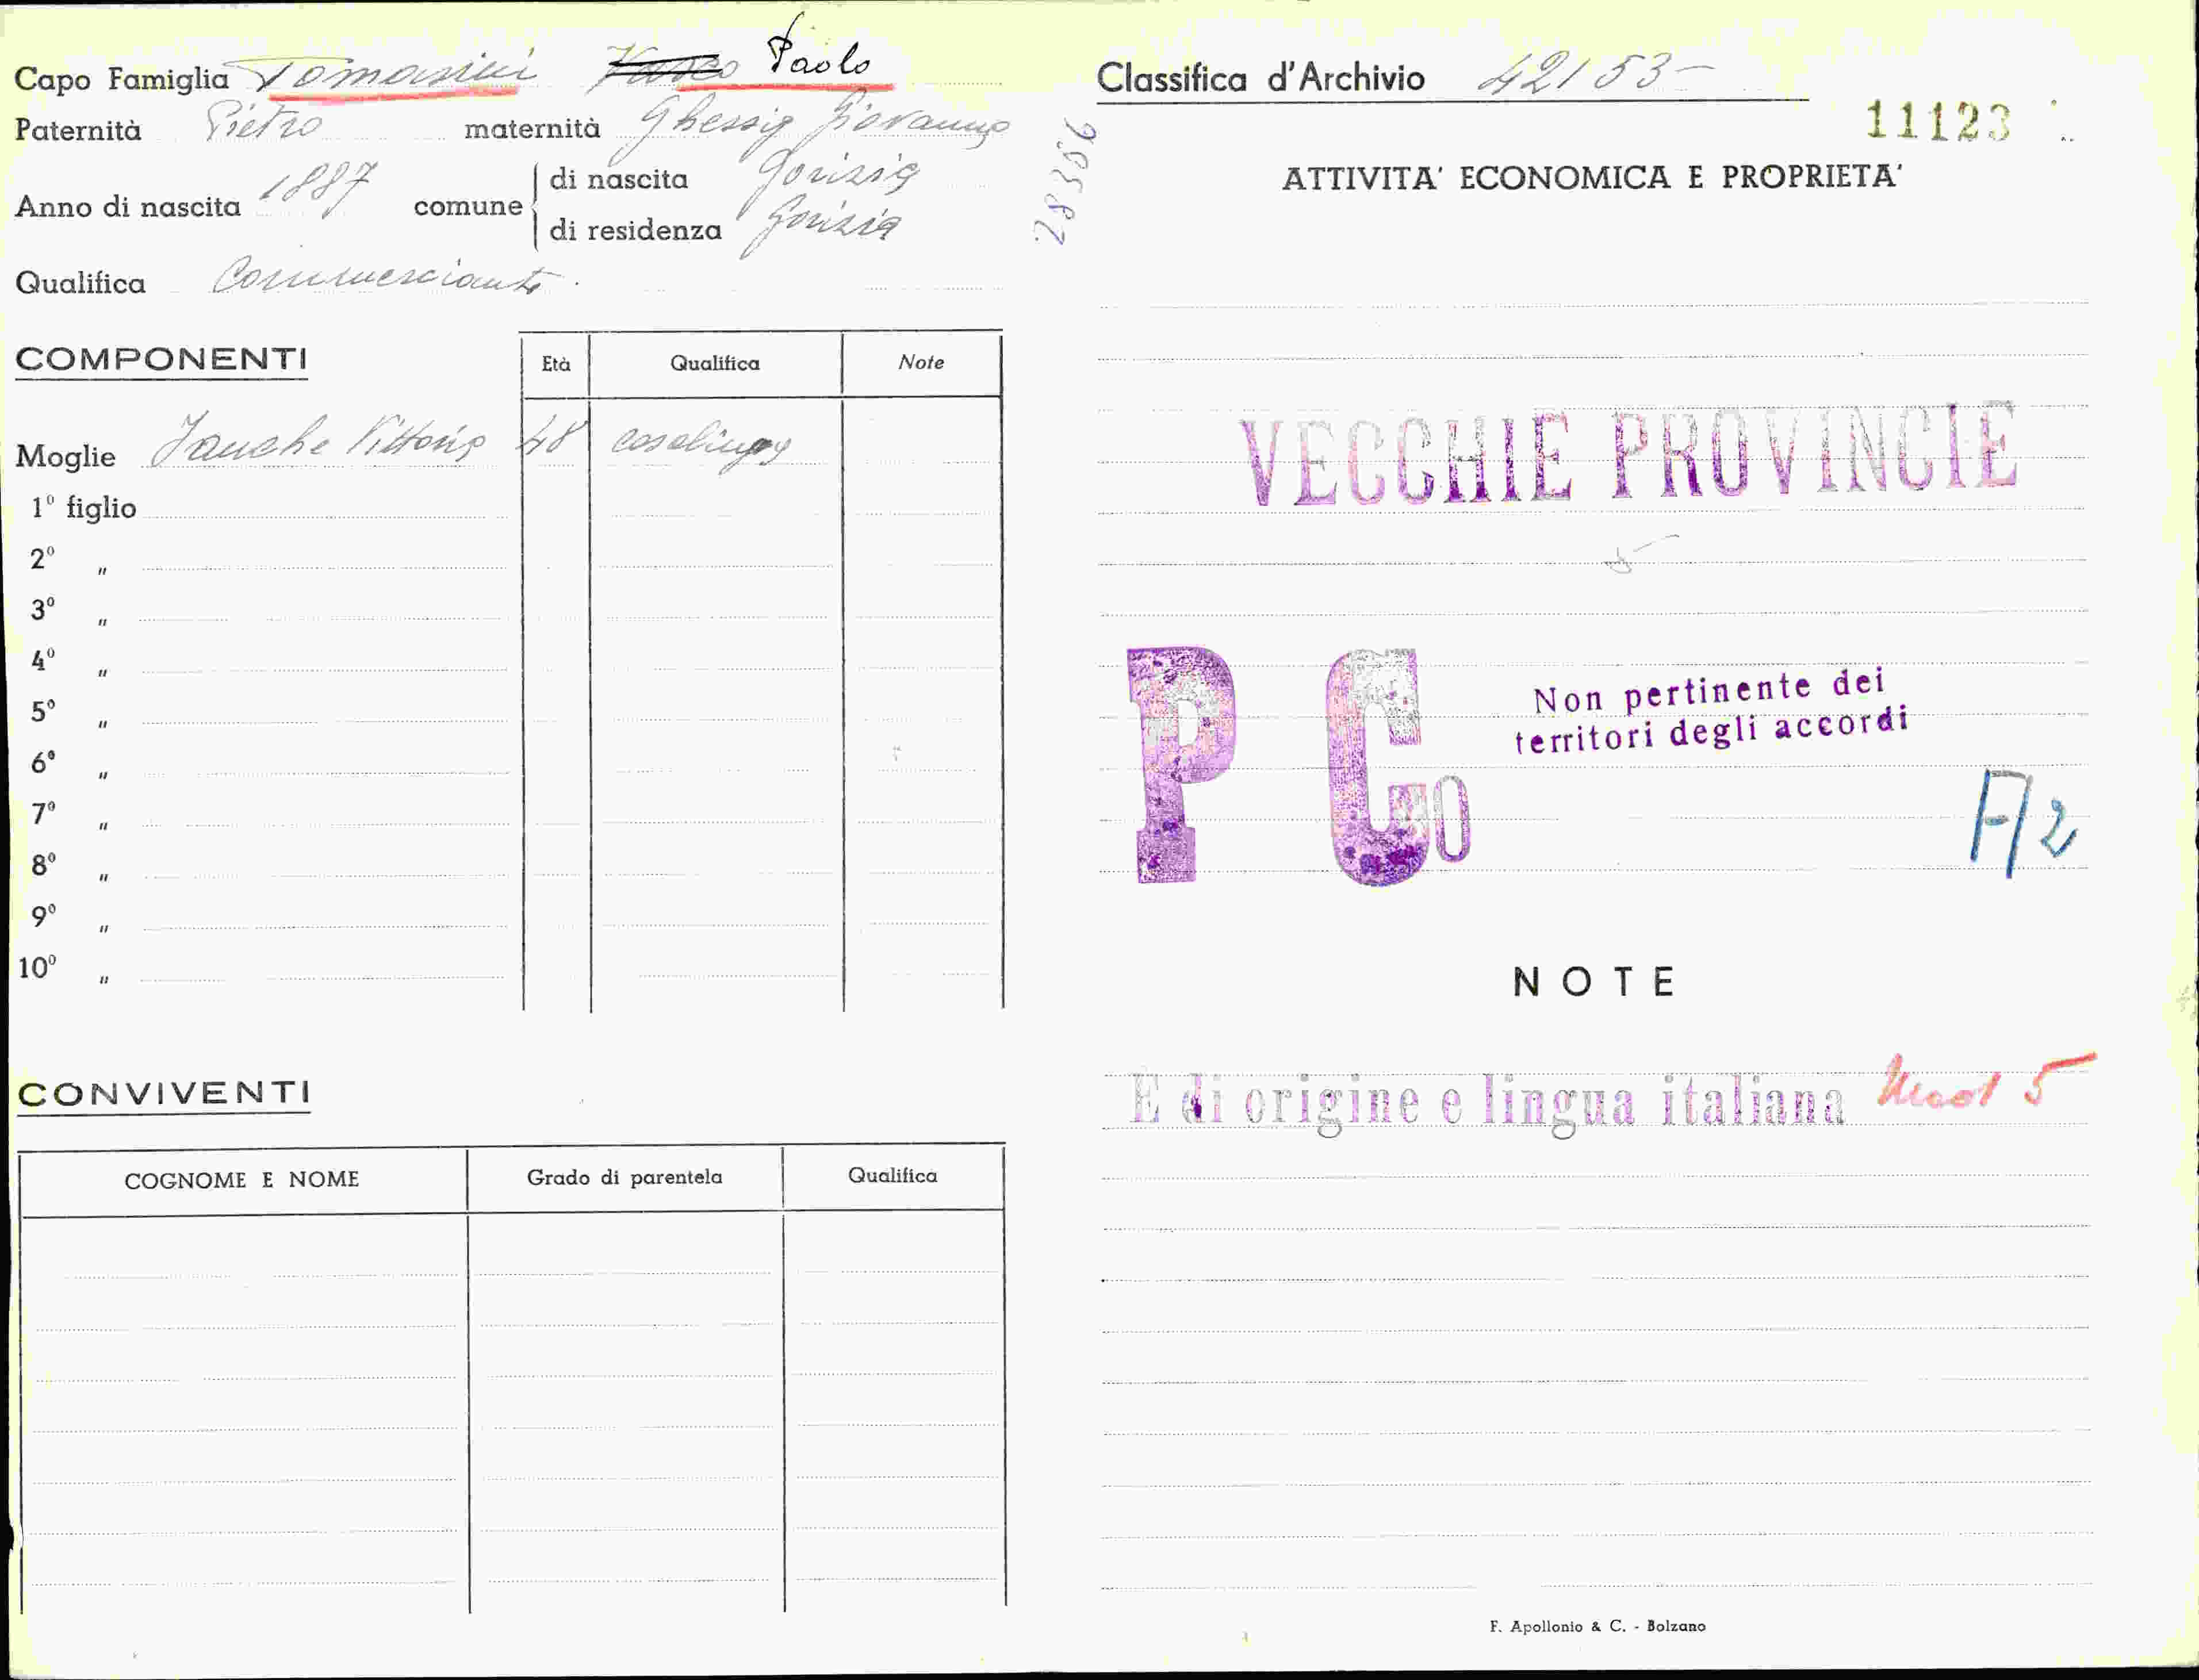 Capo Famiglia Tomasini Paolo
Paternità Pietro maternità Ghessig Giovanna
Anno di nascita 1887 comune di nascita Gorizia
di residenza Gorizia
Qualifica Commerciante
COMPONENTI Età Qualifica Note
Moglie Vittoria 48 casalinga
1º figlio
2º "
3º "
4º "
5º "
6º "
7º "
8º "
9º "
10º "
CONVIVENTI
COGNOME E NOME Grado di parentela Qualifica
28306
Classifica d'Archivio 42153-
11123
ATTIVITA' ECONOMICA E PROPRIETA'
VECCHIE PROVINCIE
P Co
Non pertinente dei
territori degli accordi
NOTE
E di origine e lingua italiana Mod 5
F. Apollonio & C. - Bolzano